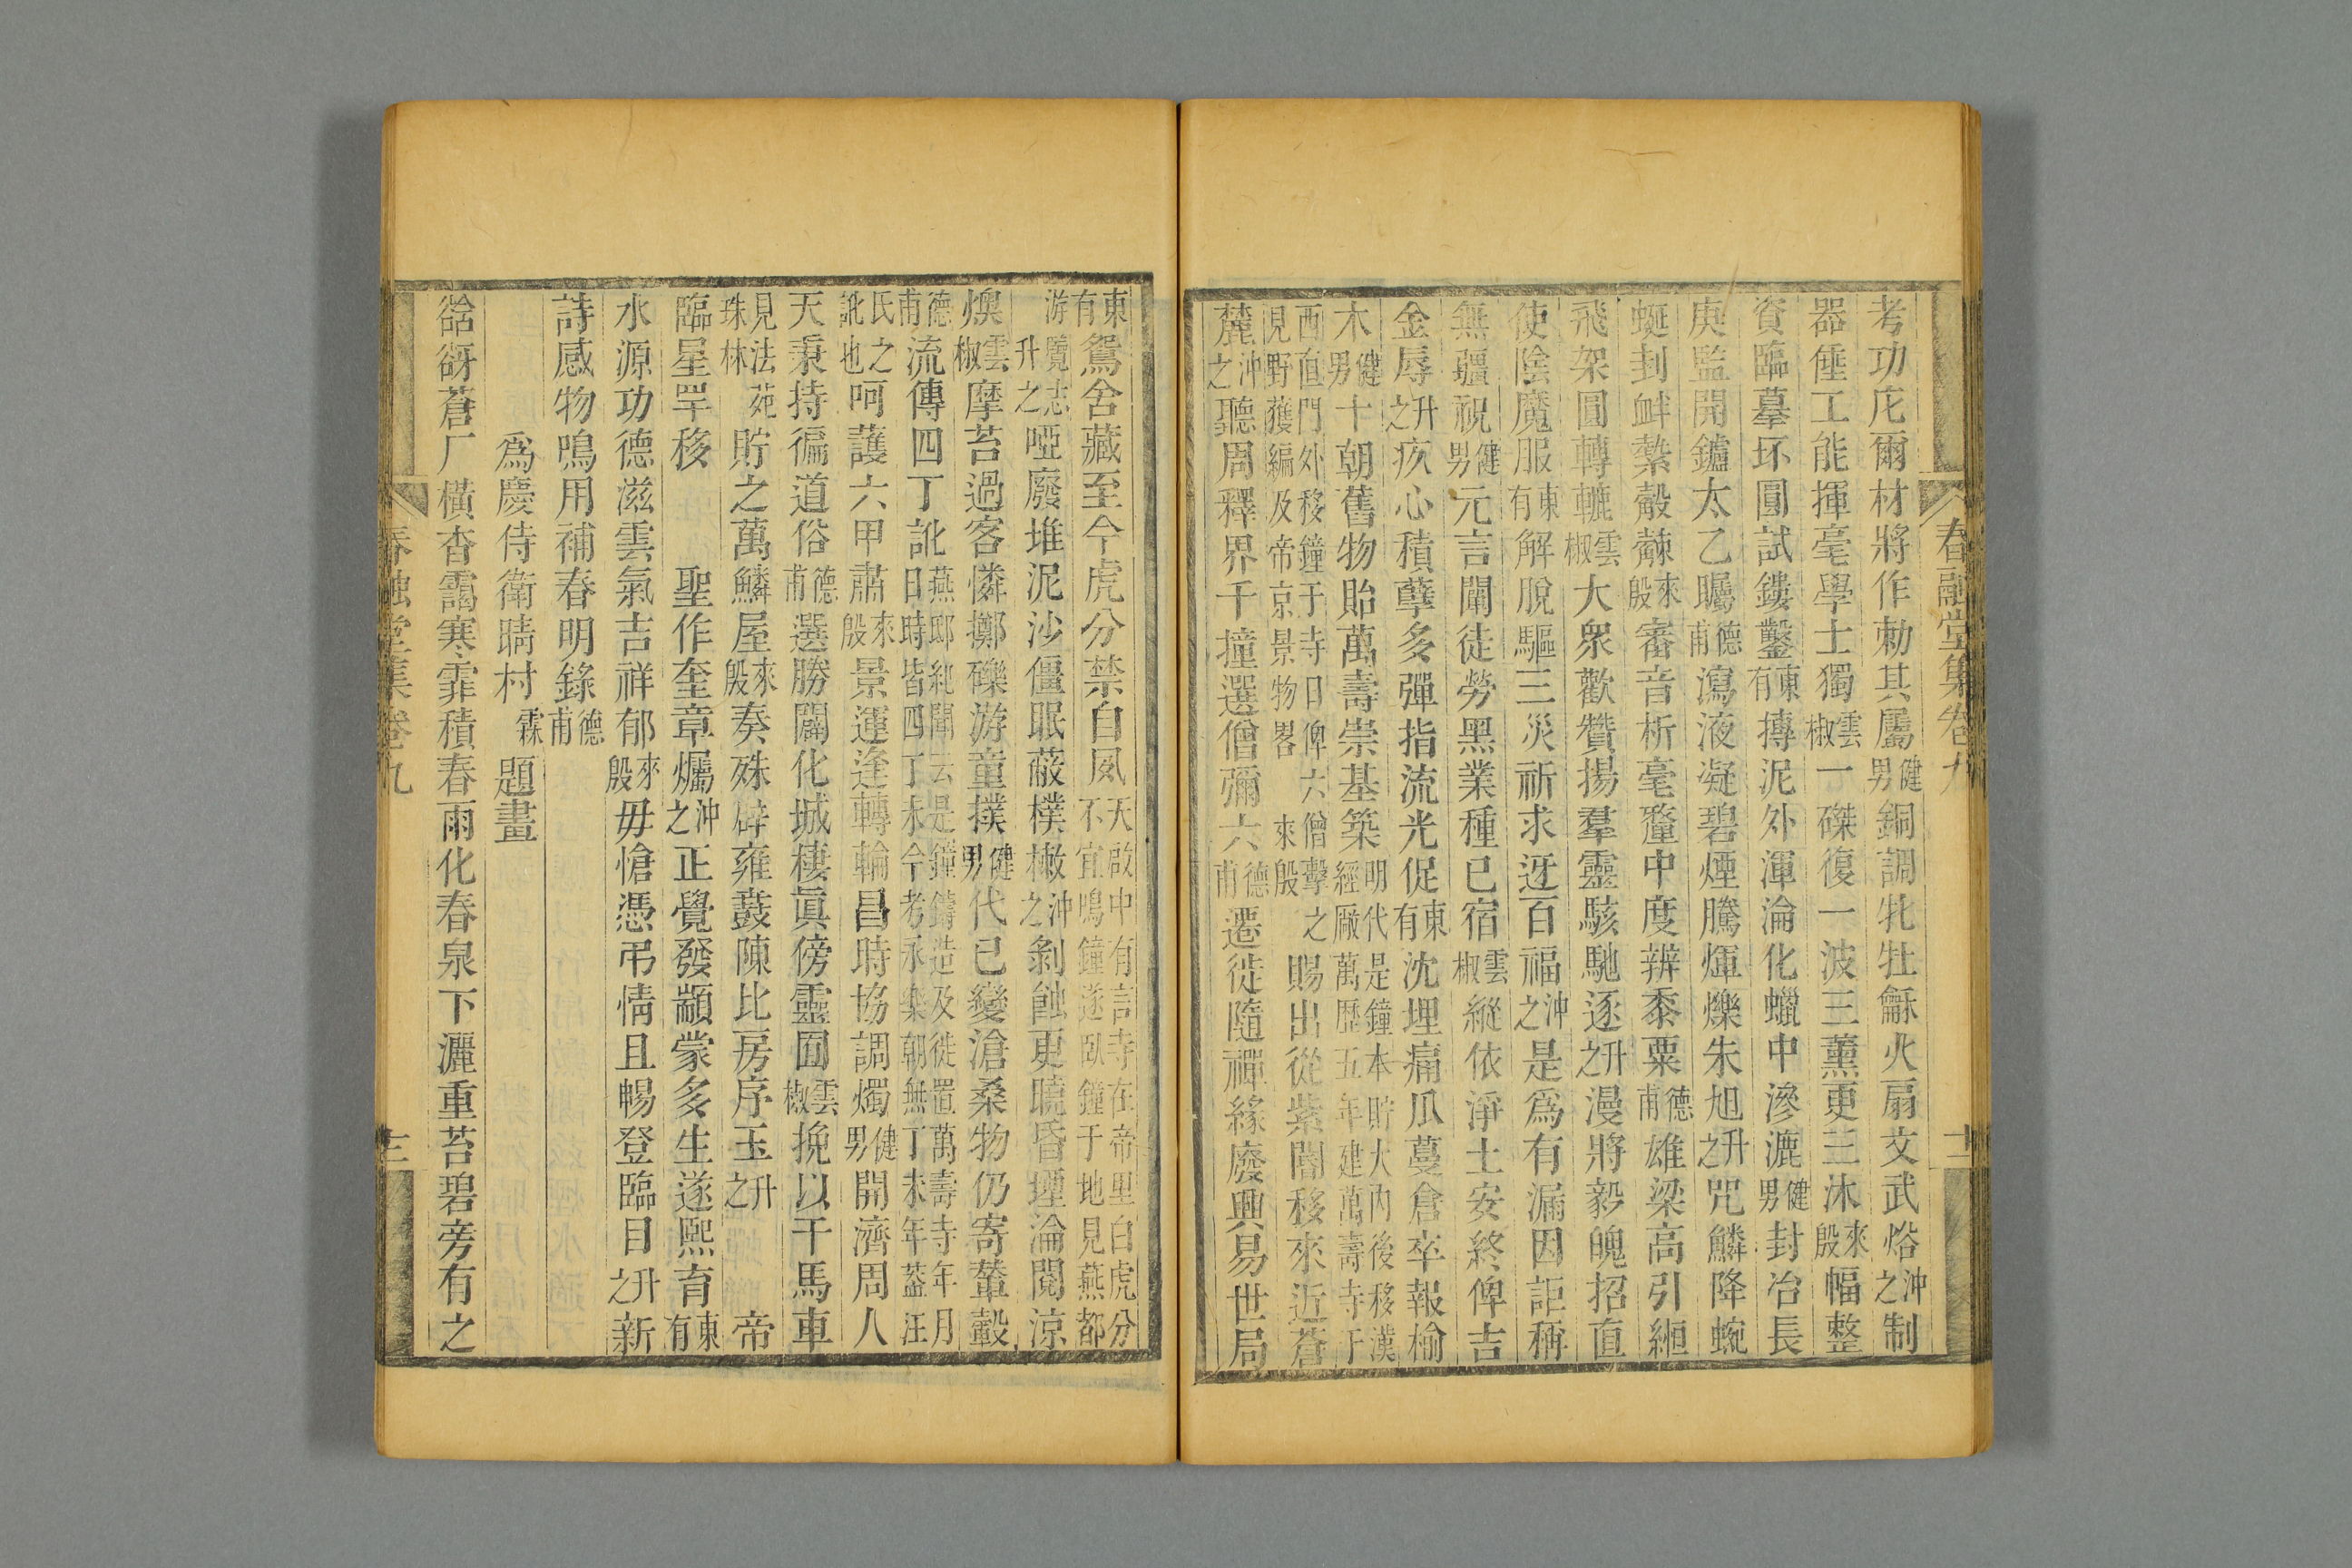 春融堂集卷九
十二
考功庀爾材將作勅其屬健男銅調牝牡龢火扇文武焀沖之制
器倕工能揮毫學士獨雲椒一磔復一波三薰更三沐來殷幅整
資臨摹坏圓試鏤鑿東有摶泥外渾淪化蠟中滲漉健男封冶長
庚監開鑪太乙矚德甫瀉液凝碧煙騰煇爍朱旭升之咒鱗降蜿
蜒刲衅縶觳觫來殷審音析毫釐中度辨黍粟德甫雄梁高引緪
飛架圓轉轆雲椒大衆歡贊揚羣靈駭馳逐升之漫將毅魄招直
使陰魔服東有解脫驅三災祈求迓百福沖之是爲有漏因詎稱
無疆祝健男元言闡徒勞黑業種已宿雲椒縱依淨土安終俾吉
金辱升之疚心積孽多彈指流光促東有沈埋痛瓜蔓倉卒報榆
木健男十朝舊物貽萬壽崇基築明代是鐘本貯大內後移漢經厰萬歷五年建萬壽寺于
西直門外移鐘于寺日俾六僧擊之見野獲編及帝京景物畧來殷賜出從紫闇移來近蒼
麓沖之聽周釋界千撞選僧彌六德甫遷徙隨禪緣廢興易世局
東有鴛舍藏至今虎分禁白風天啟中有言寺在帝里白虎分不宜鳴鐘遂臥鐘于地見燕都
游覽志升之啞廢堆泥沙僵眠蔽樸樕沖之剝蝕更曉昏堙淪閱涼
燠雲椒摩苔過客憐擲礫游童撲健男代已變滄桑物仍寄輦轂
德甫流傳四丁訛燕邸紀聞云是鐘鑄造及徙置萬壽寺年月日時皆四丁未今考永樂朝無丁未年葢汪
氏之訛也呵護六甲肅來殷景運逢轉輪昌時協調燭健男開濟周人
天秉持徧道俗德甫選勝闢化城棲眞傍靈囿雲椒挽以千馬車
見法苑珠林貯之萬鱗屋來殷奏殊辟雍鼖陳比房序玉升之帝
臨星罕移聖作奎章爥沖之正覺發顓蒙多生遂熙育東有
水源功德滋雲氣吉祥郁來殷毋愴憑弔情且暢登臨目升之新
詩感物鳴用補春明錄德甫
爲慶侍衛晴村霖題畫
谽谺蒼厂橫杳靄寒霏積春雨化春泉下灑重苔碧旁有之
春融堂集卷九
十三